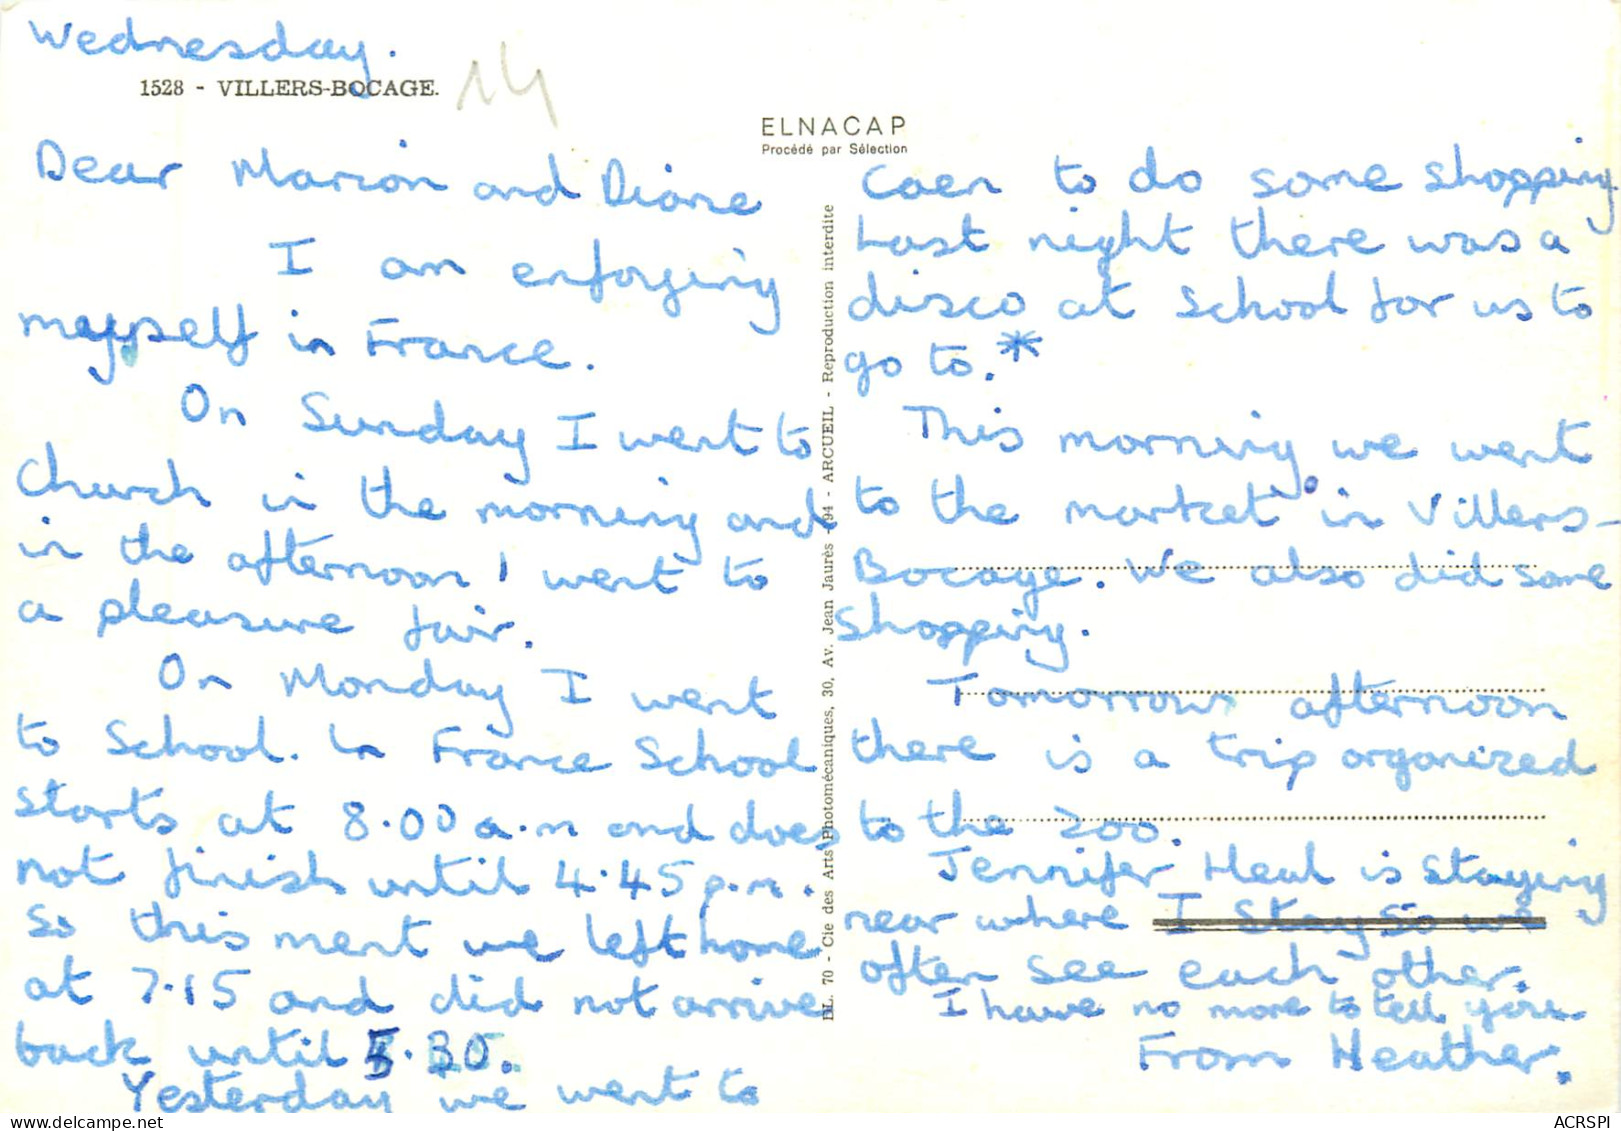 Wednesday.
1528 - VILLERS-BOCAGE.
14
ELNACAP
Procédé par Sélection
Dear Marion and Diane
I am enjoying
myself in France.
On Sunday I went to
Church in the morning and
in the afternoon I went to
a pleasure fair.
On Monday I went
to School. In France School
starts at 8.00 a.m and does
not finish until 4.45 p.m.
So this ment we left home
at 7.15 and did not arrive
back until 5.30.
Yesterday we went to
BL. 70 - Cie des Arts Photomécaniques, 30, Av. Jean Jaurès - 94 - ARCUEIL - Reproduction interdite
Caen to do some shopping.
Last night there was a
disco at School for us to
go to.*
This morning we went
to the market in Villers-
Bocage. We also did some
Shopping.
Tomorrows afternoon
there is a trip organized
to the zoo.
Jennifer Heal is staying
near where I stay so we
often see each other.
I have no more to tell you
From Heather.
ACRSPI